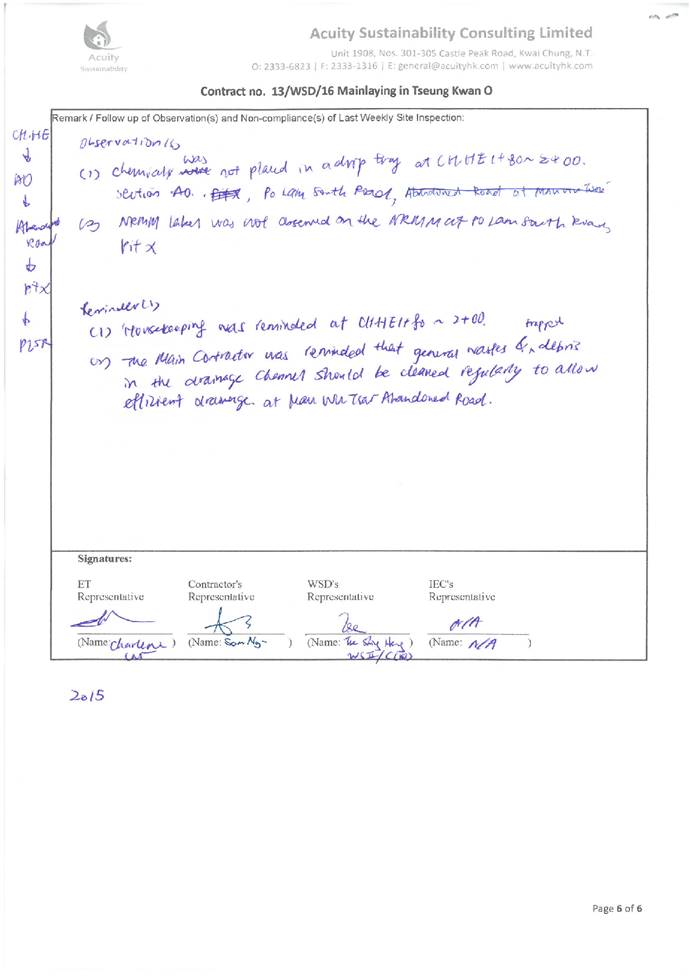 Acuity
Sustainability
Acuity Sustainability Consulting Limited
Unit 1908, Nos. 301-305 Castle Peak Road, Kwai Chung, N.T.
O: 2333-6823 | F: 2333-1316 | E: general@acuityhk.com | www.acuityhk.com
Contract no. 13/WSD/16 Mainlaying in Tseung Kwan O
Remark / Follow up of Observation(s) and Non-compliance(s) of Last Weekly Site Inspection:
CH.HE
↓
AO
↓
Abandoned
Road
↓
pit x
↓
P25R
Observation(s)
(1) Chemicals was not placed in a drip tray at CH.HE 1+80~2+00.
Section AO. , Po Lam South Road, Abandoned Road of Mau Wu Tsai
(2) NRMM label was not observed on the NRMM at Po Lam South Road,
Pit X
Reminder(s)
(1) Housekeeping was reminded at CH.HE1+80 ~ 2+00.
(2) The Main Contractor was reminded that general wastes & trapped debris
in the drainage channel should be cleaned regularly to allow
efficient drainage at Mau Wu Tsai Abandoned Road.
Signatures:
ET
Representative
Contractor's
Representative
WSD's
Representative
IEC's
Representative
N/A
(Name: Charlene )
(Name: Sam Ng )
(Name: )
(Name: N/A )
2015
Page 6 of 6